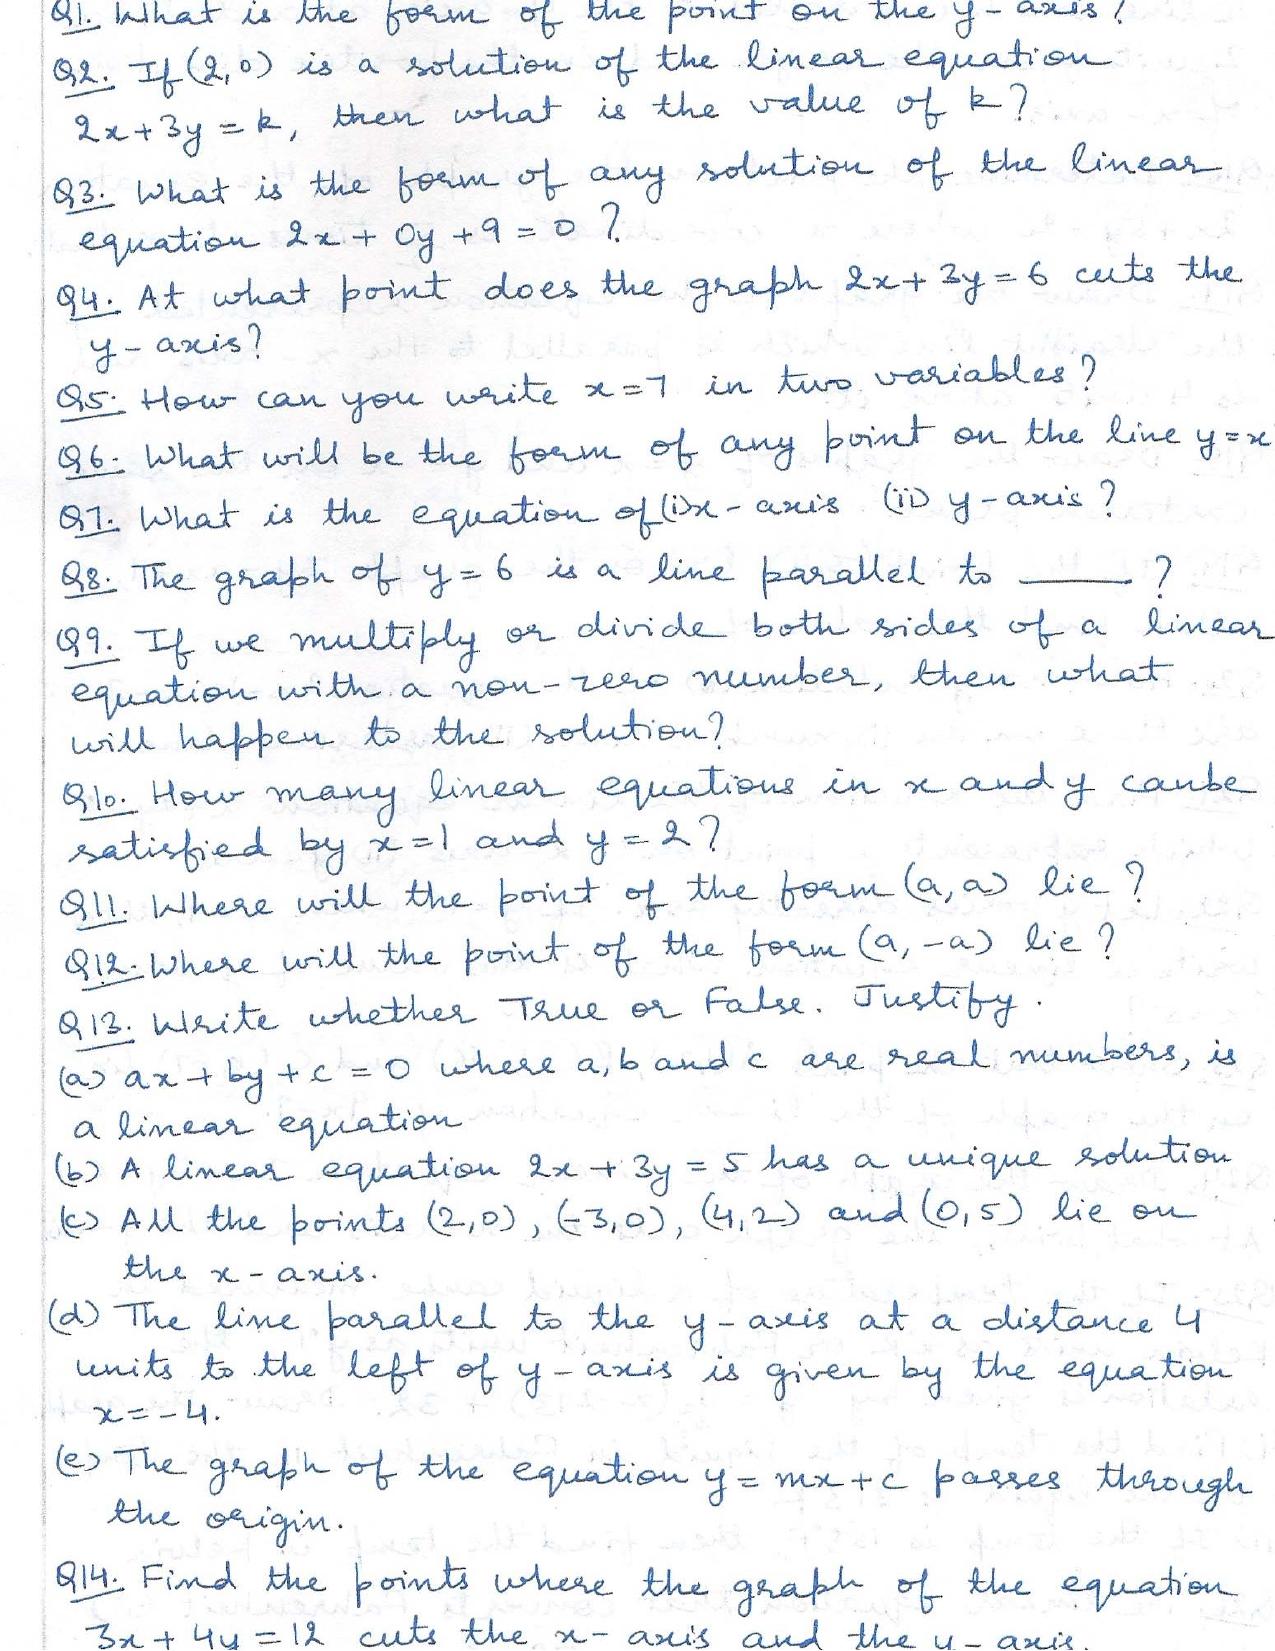 Q1. What is the form of the point on the y-axis?
Q2. If (2,0) is a solution of the linear equation
2x+3y=k, then what is the value of k?
Q3. What is the form of any solution of the linear
equation 2x + 0y + 9 = 0?
Q4. At what point does the graph 2x+3y=6 cuts the
y-axis?
Q5. How can you write x=7 in two variables?
Q6. What will be the form of any point on the line y=x
Q7. What is the equation of (i) x-axis (ii) y-axis?
Q8. The graph of y=6 is a line parallel to ____?
Q9. If we multiply or divide both sides of a linear
equation with a non-zero number, then what
will happen to the solution?
Q10. How many linear equations in x and y canbe
satisfied by x=1 and y=2?
Q11. Where will the point of the form (a,a) lie?
Q12. Where will the point of the form (a,-a) lie?
Q13. Write whether True or False. Justify.
(a) ax+by+c=0 where a,b and c are real numbers, is
a linear equation
(b) A linear equation 2x+3y=5 has a unique solution
(c) All the points (2,0), (-3,0), (4,2) and (0,5) lie on
the x-axis.
(d) The line parallel to the y-axis at a distance 4
units to the left of y-axis is given by the equation
x=-4.
(e) The graph of the equation y=mx+c passes through
the origin.
Q14. Find the points where the graph of the equation
3x+4y=12 cuts the x-axis and the y-axis.